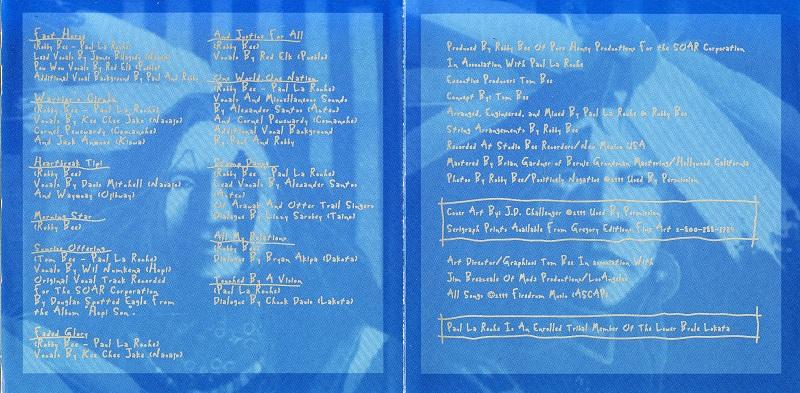 Fast Horse
(Robby Bee - Paul La Roche)
Lead Vocals By James Bilagody (Navajo)
Pow Wow Vocals By Red Elk (Pueblo)
Additional Vocal Background By Paul And Robby
Warrior's
(Robby Bee - Paul La Roche)
Vocals By Kee Chee Jake (Navajo)
Cornel Pewewardy (Comanche)
And Jack Anquoe (Kiowa)
Heartbreak Tipi
(Robby Bee)
Vocals By Davis Mitchell (Navajo)
And Wayquay (Ojibway)
Morning Star
(Robby Bee)
Sunrise Offering
(Tom Bee - Paul La Roche)
Vocals By Wil Numkena (Hopi)
Original Vocal Track Recorded
For The SOAR Corporation
By Douglas Spotted Eagle From
the Album "Hopi Son".
Faded Glory
(Robby Bee - Paul La Roche)
Vocals By Kee Chee Jake (Navajo)
And Justice For All
(Robby Bee)
Vocals By Red Elk (Pueblo)
One World One Nation
(Robby Bee - Paul La Roche)
Vocals And Miscellaneous Sounds
By Alexander Santos (Aztec)
And Cornel Pewewardy (Comanche)
Additional Vocal Background
By Paul And Robby
Stomp Dance
(Robby Bee - Paul La Roche)
Lead Vocals By Alexander Santos
(Aztec)
Of Arawak And Otter Trail Singers
Dialogue By Sarokey (Taino)
All My Relations
(Robby Bee)
Dialogue By Bryan Akipa (Dakota)
Touched By A Vision
(Paul La Roche)
Dialogue By Chuck Davis (Lakota)
Produced By Robby Bee Of Pure Honey Productions For the SOAR Corporation
In Association With Paul La Roche
Executive Producer: Tom Bee
Concept By: Tom Bee
Arranged, Engineered, and Mixed By Paul La Roche & Robby Bee
String Arrangements By Robby Bee
Recorded At Studio Bee Recorders/New Mexico USA
Mastered By Brian Gardner of Bernie Grundman Mastering/Hollywood California
Photo By Robby Bee/Positively Negative Used By Permission
Cover Art By: J.D. Challenger Used By Permission
Serigraph Prints Available From Gregory Editions Fine Art
Art Director/Graphics: Tom Bee In Association With
Jim Breazeale Of Mods Productions/Los Angeles
All Songs Firedrum Music (ASCAP)
Paul La Roche Is An Enrolled Tribal Member Of The Lower Brule Lakota